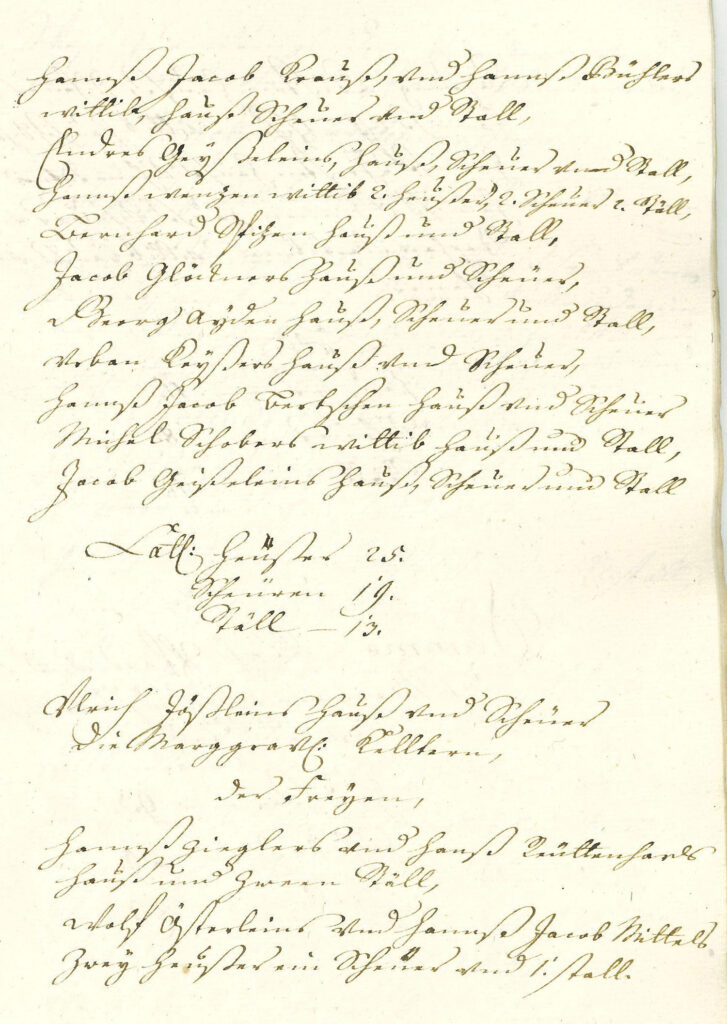 Hannß Jacob Krauß, vnd Hannß Bühlers
wittib, Hauß Scheuer vnd Stall,
Endres Geyßeleins, Hauß, Scheuer vnnd Stall,
Hannß wentzen wittib 2. Heußer, 2. Scheuer 2. Ställ,
Bernhard Spitzen Hauß und Stall,
Jacob Glöckners Hauß und Scheuer,
Georg Ayden Hauß, Scheuer und Stall,
Urban Keyßers Hauß vnd Scheuer,
Hannß Jacob Bertschen Hauß vnd Scheuer
Michel Schobers wittib Hauß und Stall,
Jacob Geißeleins Hauß, Scheuer und Stall
Latt: Heüßer 25.
Scheüren 19.
Ställ — 13.
Ulrich Jößleins Hauß vnd Scheüer
die Marggrävl: Kelltern,
der Freyen,
Hannß Zieglers vnd Hanß Reüttenhards
Hauß und Zween Ställ,
Wolf Österleins vnd Hannß Jacob Mittels
Zwey Heußer ein Scheuer vnd 1. stall.